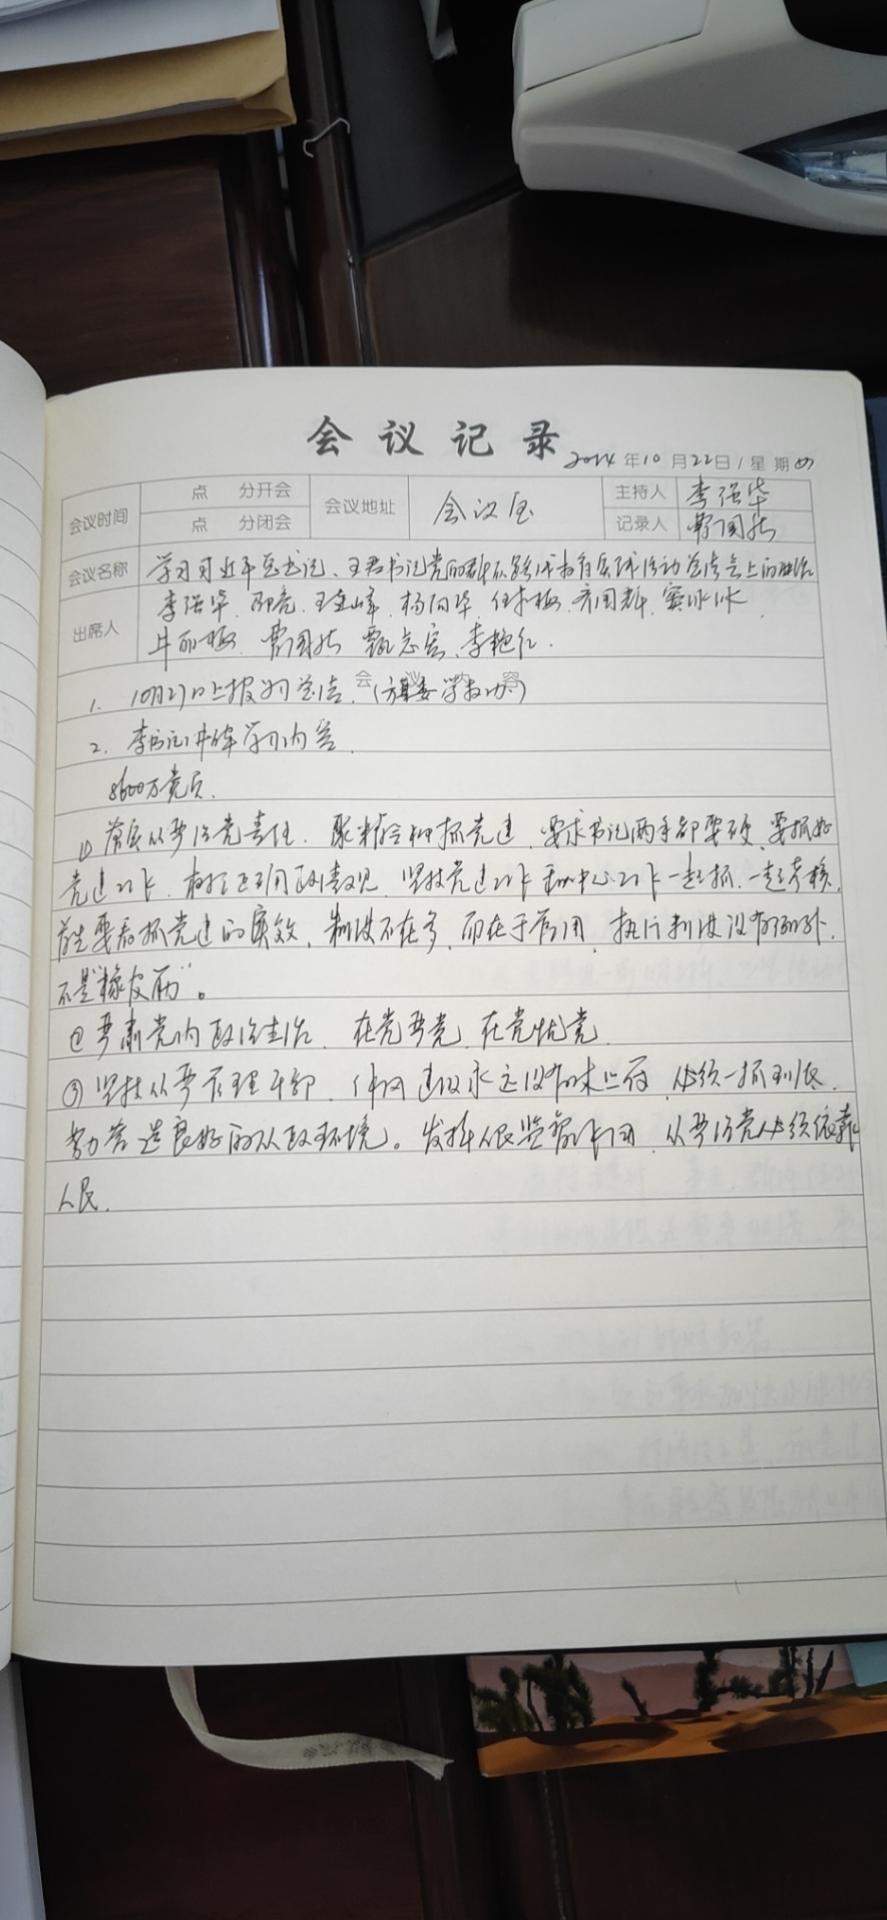 会议记录
2014年10月22日/星期四
会议时间 点 分开会 会议地址 会议室 主持人 李强华
点 分闭会 记录人 费国
会议名称 学习习近平总书记、王君书记党的群众路线教育实践活动总结会上的讲话
出席人 李强华、邵亮、王金峰、杨向华、任 梅、齐国群、窦冰冰、
牛丽梅、费国 甄志宏、李艳红.
会议内容
1. 10月27日上报学习总结.(方案 学教办)
2. 李书记讲解学习内容.
8600万党员.
① 落实从严治党责任、聚精会神抓党建、要求书记两手都要硬、要抓好
党建工作、树立正确政绩观、坚持党建工作和中心工作一起抓、一起考核.
首先要看抓党建的实效、制度不在多、而在于管用、执行制度没有例外.
不是"橡皮 "。
② 严肃党内政治生活、在党严党、在党忧党.
③ 坚持从严管理干部、作风建设永远没有休止符、必须一抓到底.
努力营造良好的从政环境。发挥人民监督作用、从严治党必须依靠
人民.